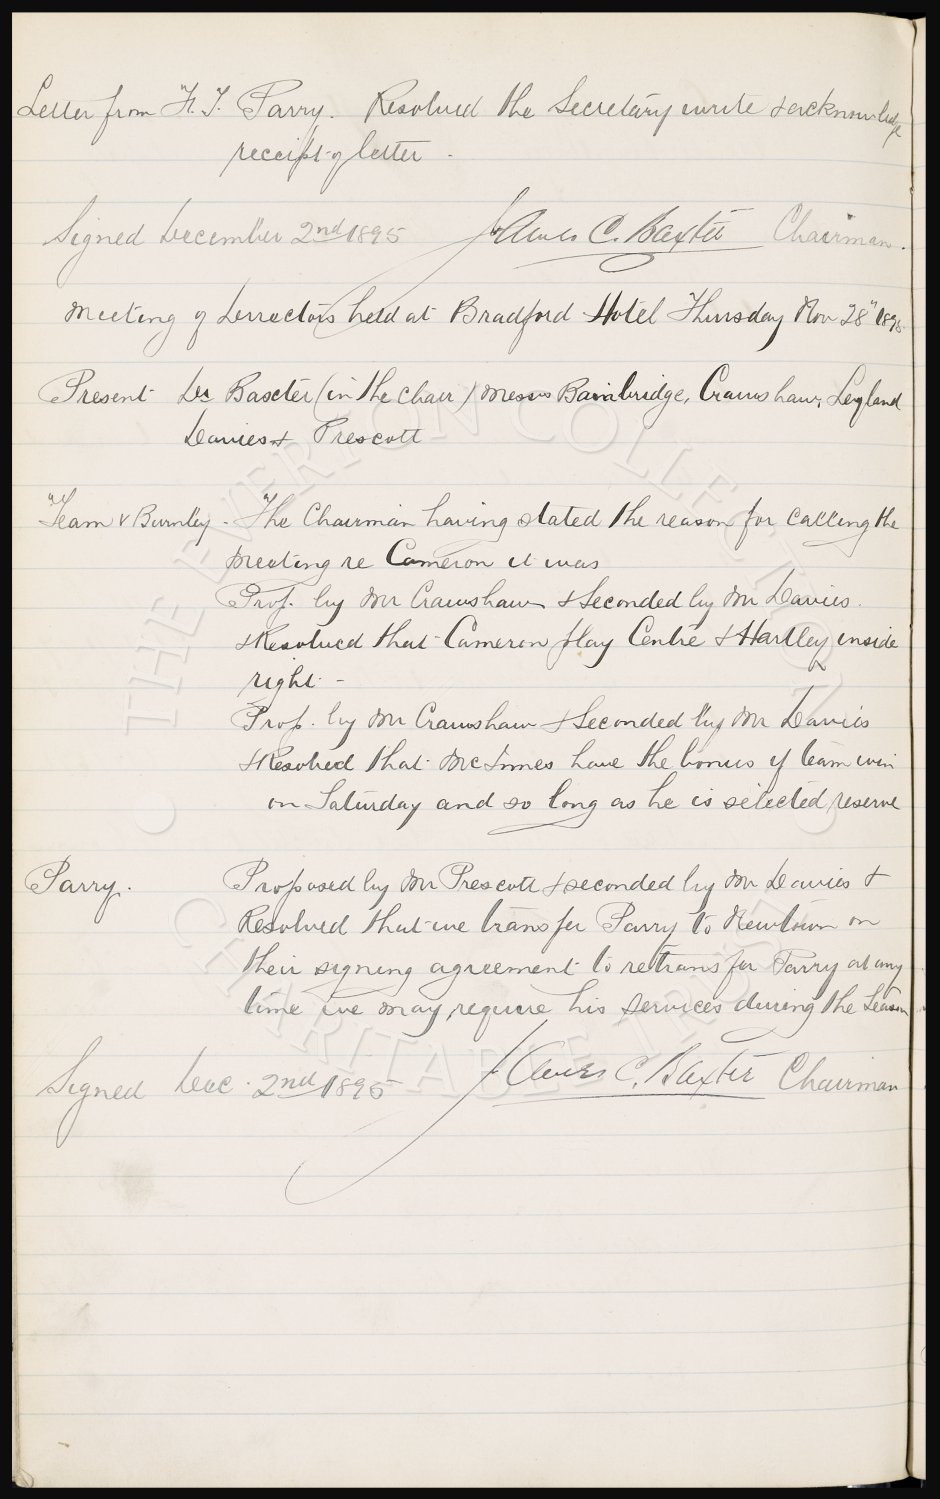 Letter from F. T. Parry. Resolved the Secretary write & acknowledge
receipt of letter.
Signed December 2nd 1895 James C. Baxter Chairman.
Meeting of Directors held at Bradford Hotel Thursday Nov 28" 1895
Present Dr Baxter (in the chair) Messrs Bainbridge, Crawshaw, Leyland
Davies & Prescott
Team v Burnley - The Chairman having stated the reason for calling the
meeting re Cameron it was
Prop. by Mr Crawshaw & Seconded by Mr Davies.
& Resolved that Cameron play Centre & Hartley inside
right -
Prop. by Mr Crawshaw & Seconded by Mr Davies
& Resolved that McInnes have the bonus if team win
on Saturday and so long as he is selected reserve
Parry. Proposed by Mr Prescott & seconded by Mr Davies &
Resolved that we transfer Parry to Newtown on
their signing agreement to retransfer Parry at any
time we may require his services during the Season
Signed Dec. 2nd 1895 James C. Baxter Chairman
• THE EVERTON COLLECTION •
CHARITABLE TRUST